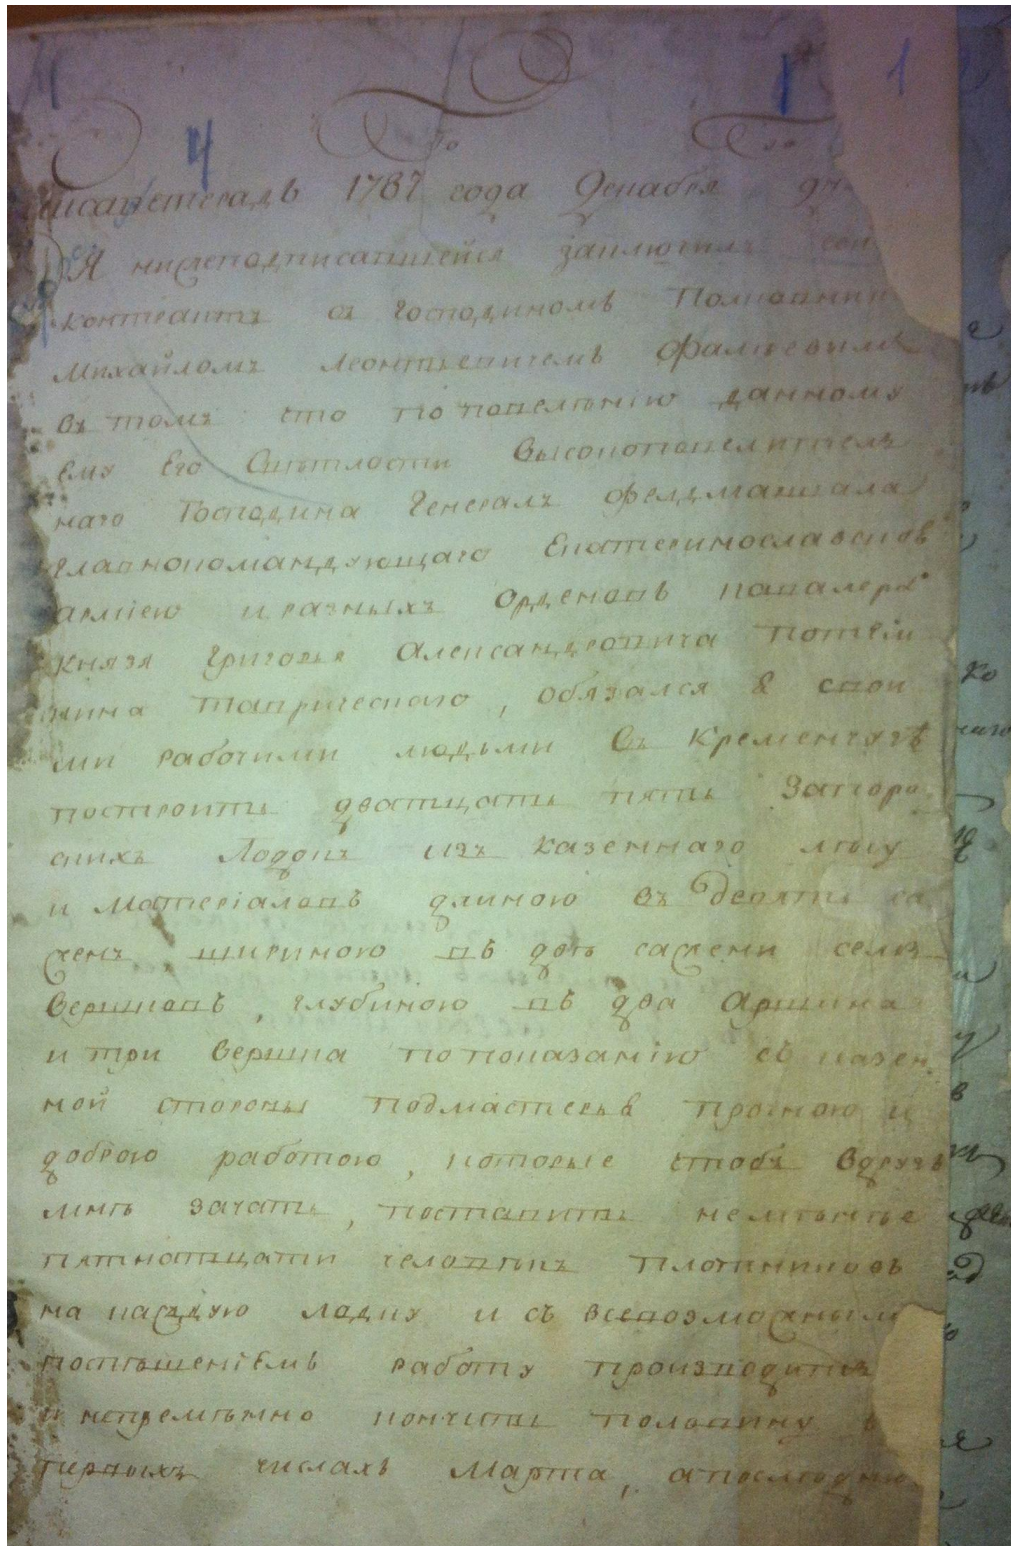 4 1 1
го го
Елисаветградъ 1787 года Декабря
Я нижеподписавшейся заключилъ сей
контрактъ съ господиномъ Полковник
Михайломъ Леонтьевичемъ Фалѣевымъ
въ томъ что по повелѣнію данному
ему Его Свѣтлости Высокоповелитель
наго Господина Генералъ Фелдмаршала
главнокомандующаго Екатеринославскою
армією и разныхъ Орденовъ кавалера
Князя Григорья Александровича Потем
кина Таврическаго, обязался я свои
ми рабочими людьми въ Кременчугѣ
построить дватцать пять Запоро
скихъ Лодокъ изъ казеннаго лѣсу
и матеріаловъ длиною въ девять са
женъ шириною въ двѣ сажени семь
вершковъ, глубиною въ два Аршина
и три вершка по показанію съ казен
ной стороны подмастерьевъ прочною и
доброю работою, которые чтобъ вдругъ
мнѣ зачать, поставить немѣнѣе
пятнатцати человѣкъ плотниковъ
на каждую лодку и съ всевозможным
поспѣшеніемъ работу производить
и непремѣнно кончить половину в
первыхъ числахъ Марта, а последнюю